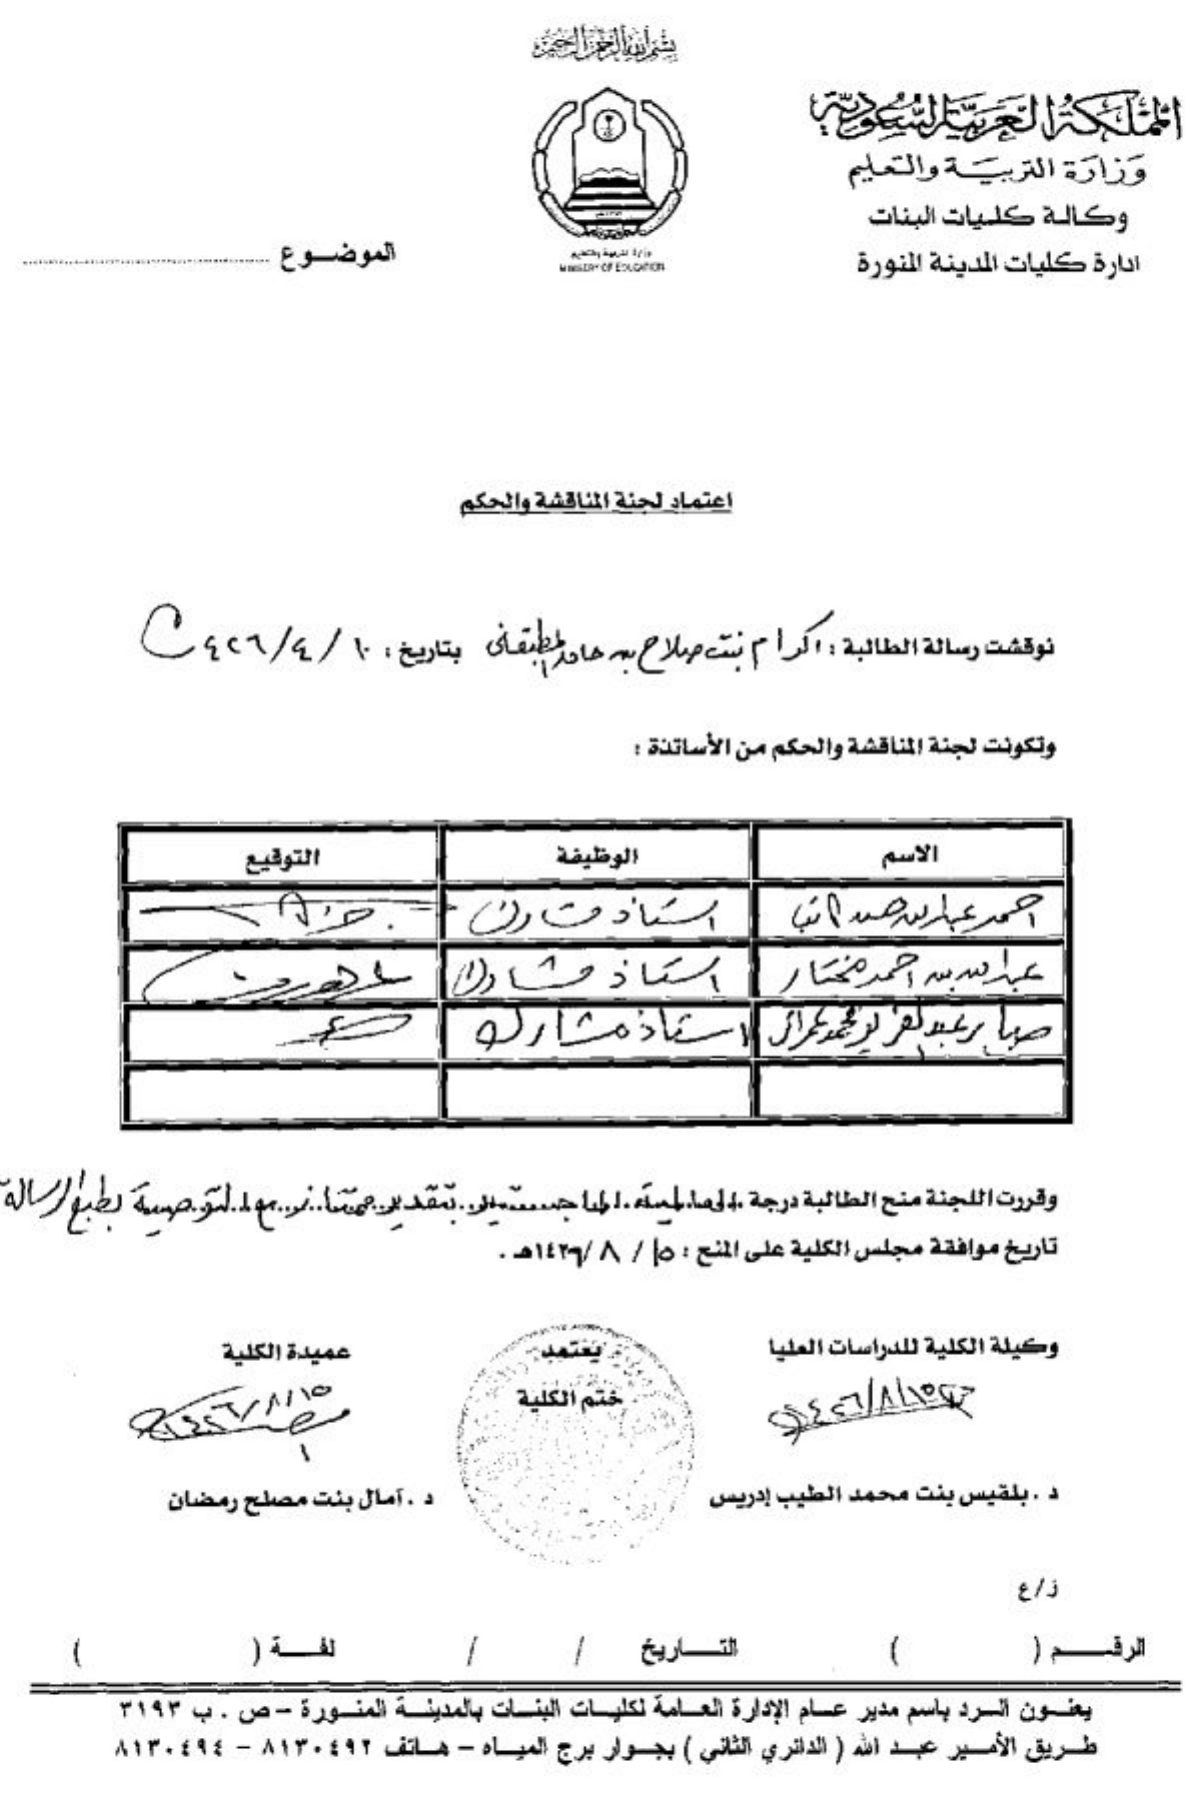 بسم الله الرحمن الرحيم
المملكة العربية السعودية
وزارة التربية والتعليم
وكالة كليات البنات
ادارة كليات المدينة المنورة
وزارة التربية والتعليم
MINISTRY OF EDUCATION
الموضوع
اعتماد لجنة المناقشة والحكم
نوقشت رسالة الطالبة : اكرام بنت صلاح بن حامد المطبقاني بتاريخ : ١٠ / ٤ / ٤٢٦
وتكونت لجنة المناقشة والحكم من الأساتذة :
الاسم الوظيفة التوقيع
احمد عبدالله استاذ مشارك
عبدالله بن احمد مختار استاذ مشارك
صابر عبدالعزيز محمد استاذ مشارك
وقررت اللجنة منح الطالبة درجة الماجستير بتقدير ممتاز مع التوصية بطبع الرسالة
تاريخ موافقة مجلس الكلية على المنح : ١٥ / ٨ / ١٤٢٦هـ .
وكيلة الكلية للدراسات العليا يعتمد عميدة الكلية
ختم الكلية
١٤٢٦/٨/١٥ ١٤٢٦/٨/١٥
د . بلقيس بنت محمد الطيب إدريس د . آمال بنت مصلح رمضان
ز/ع
الرقم ( ) التاريخ / / لفة ( )
يعنون الرد باسم مدير عام الإدارة العامة لكليات البنات بالمدينة المنورة – ص . ب ٣١٩٣
طريق الأمير عبد الله ( الدائري الثاني ) بجوار برج المياه – هاتف ٨١٣٠٤٩٢ – ٨١٣٠٤٩٤